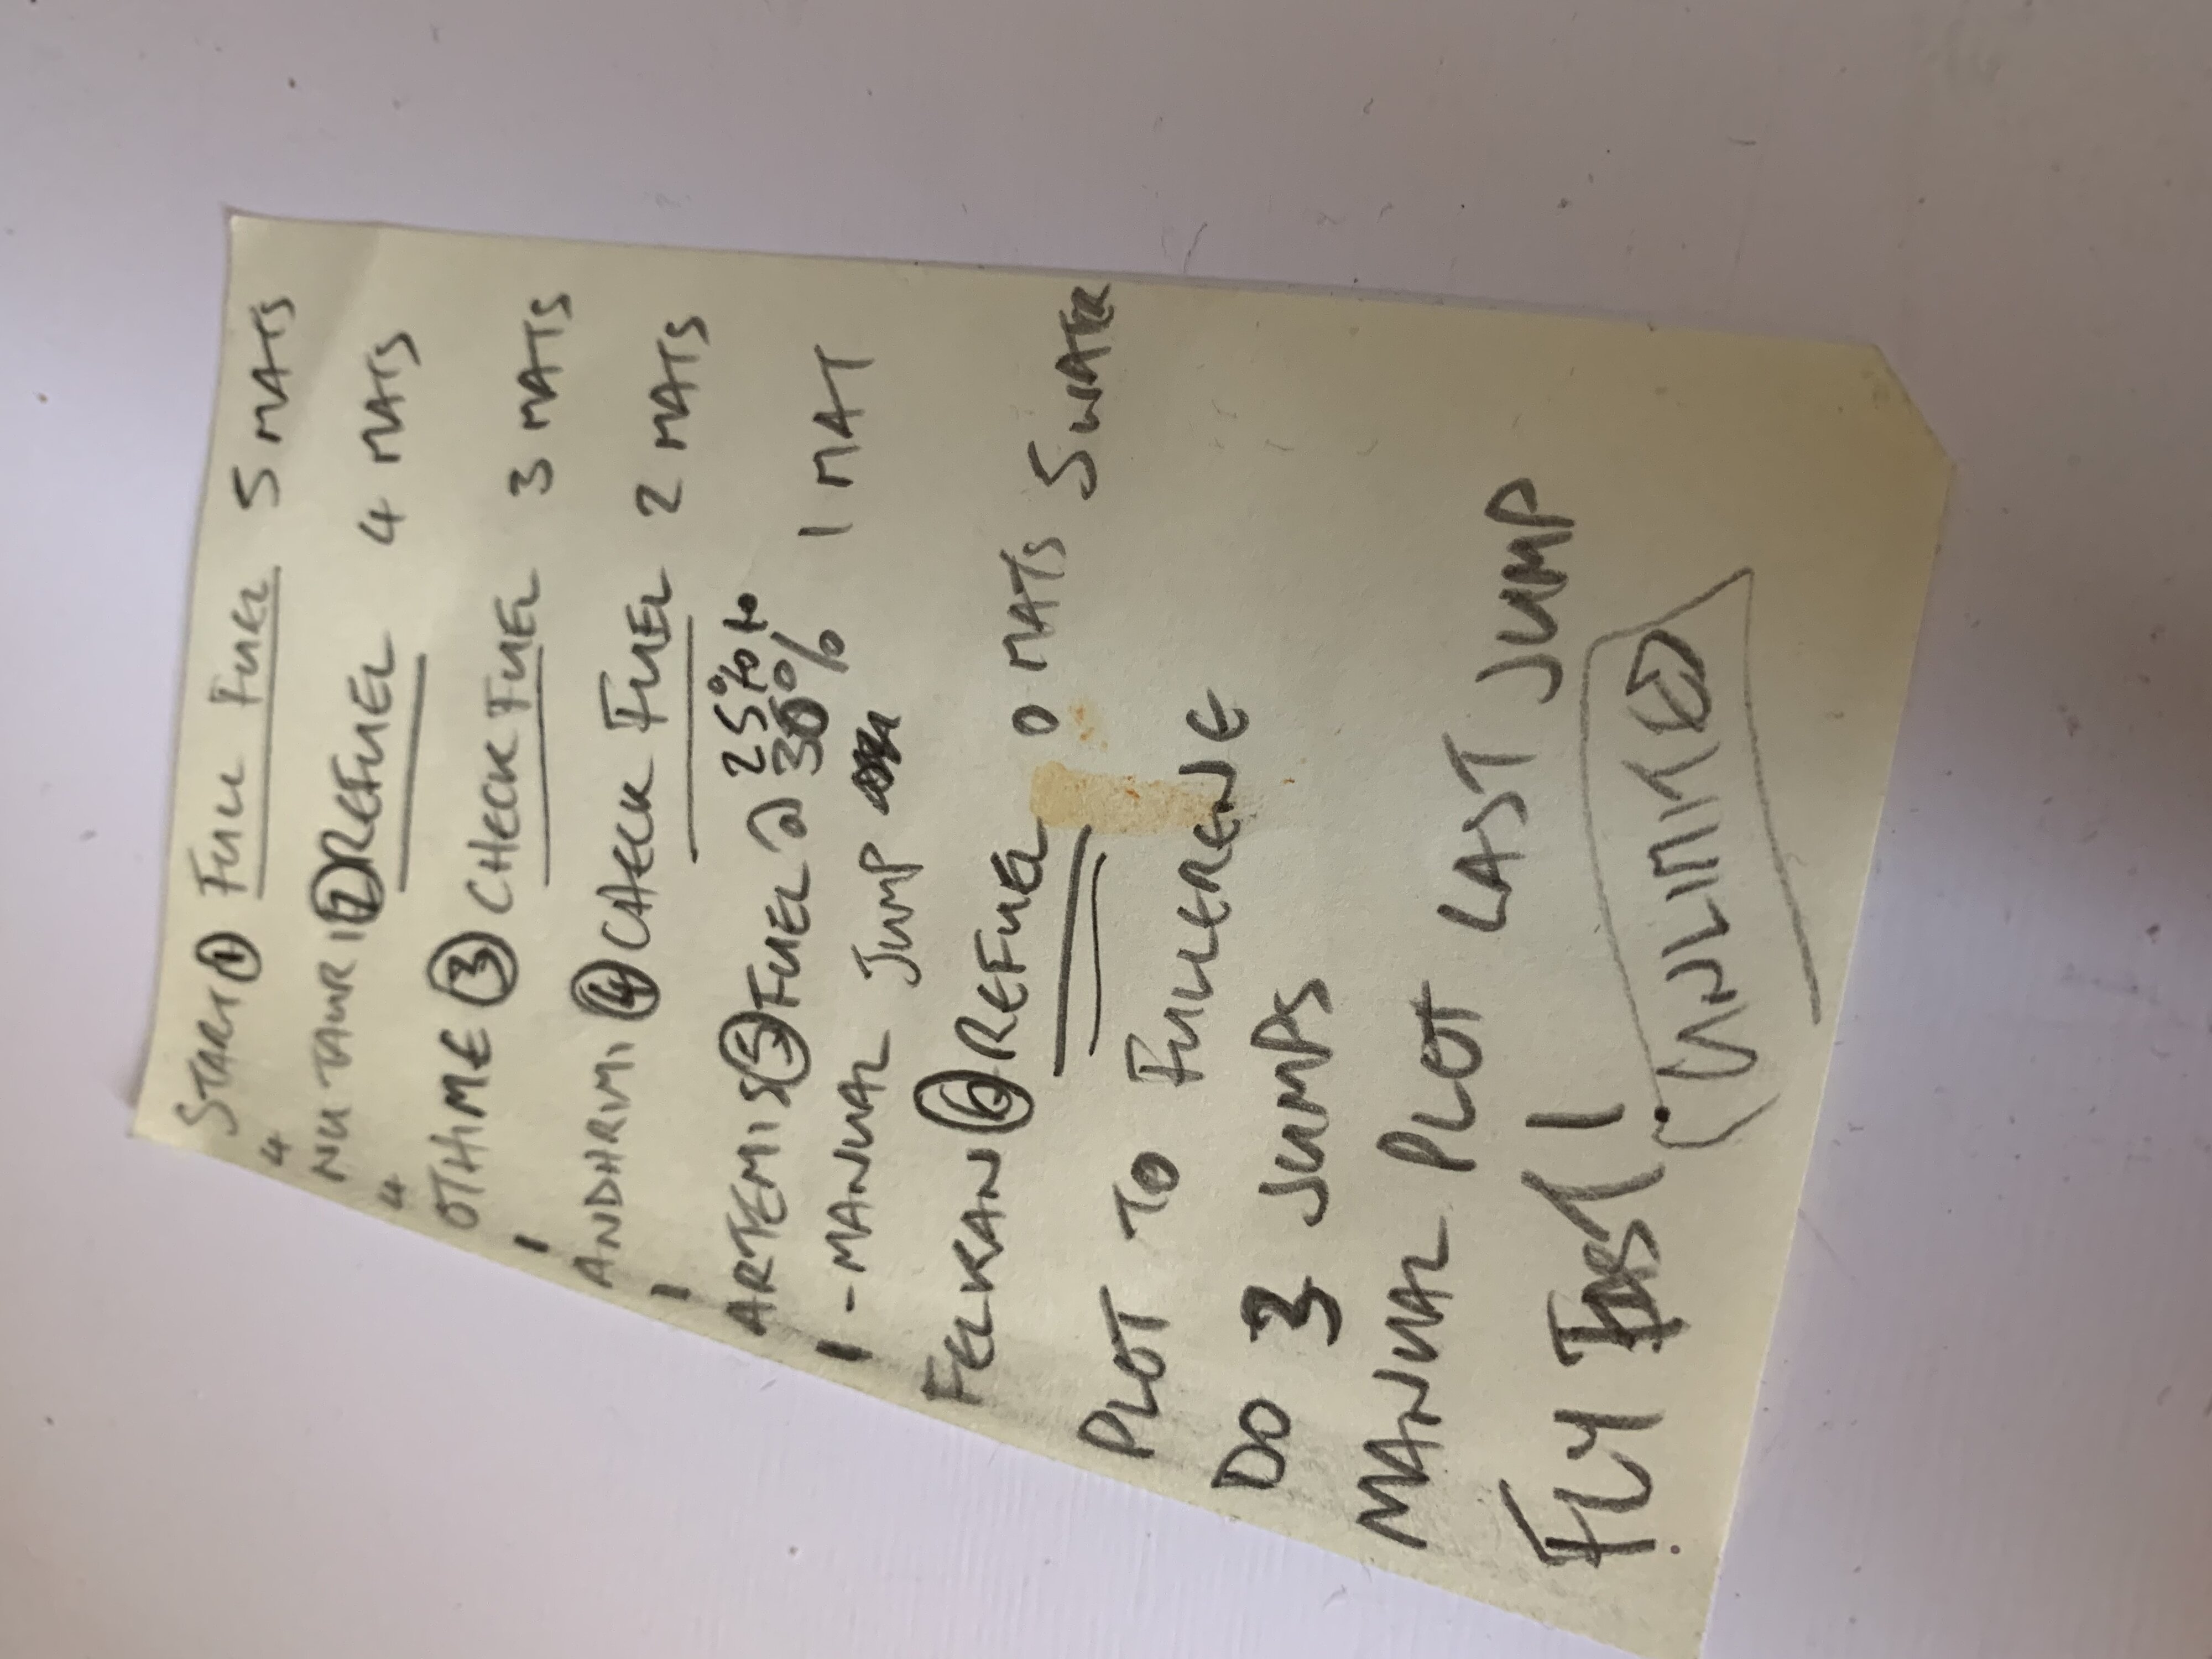 START ① FULL FUEL 5 MATS
4
NU TAURI ② REFUEL 4 MATS
4
OTHIME ③ CHECK FUEL 3 MATS
1
ANDHRIMI ④ CHECK FUEL 2 MATS
1
25% to
ARTEMIS ⑤ FUEL @ 30% 1 MAT
1 - MANUAL JUMP
FELKAN ⑥ REFUEL 0 MATS 5 WATER
PLOT TO FULLERENE
DO 3 JUMPS
MANUAL PLOT LAST JUMP
FLY
UNLIMITED